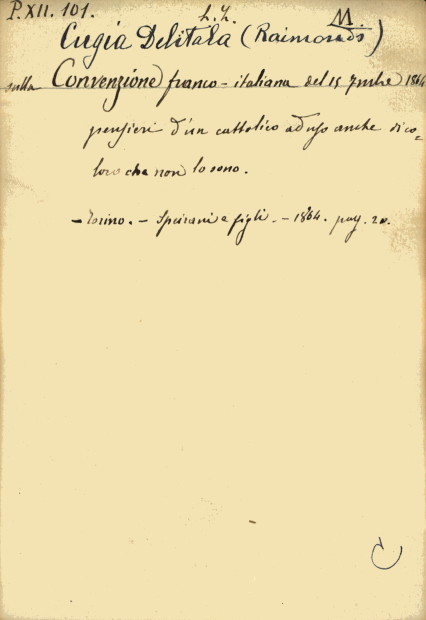 P.XII. 101.
M
Cugia Delitala (Raimondo)
sulla Convenzione franco-italiana del 15 7mbre 1864
pensieri d'un cattolico ad uso anche di co-
loro che non lo sono.
- Torino. - Speirani e figli. - 1864. pag. 20.